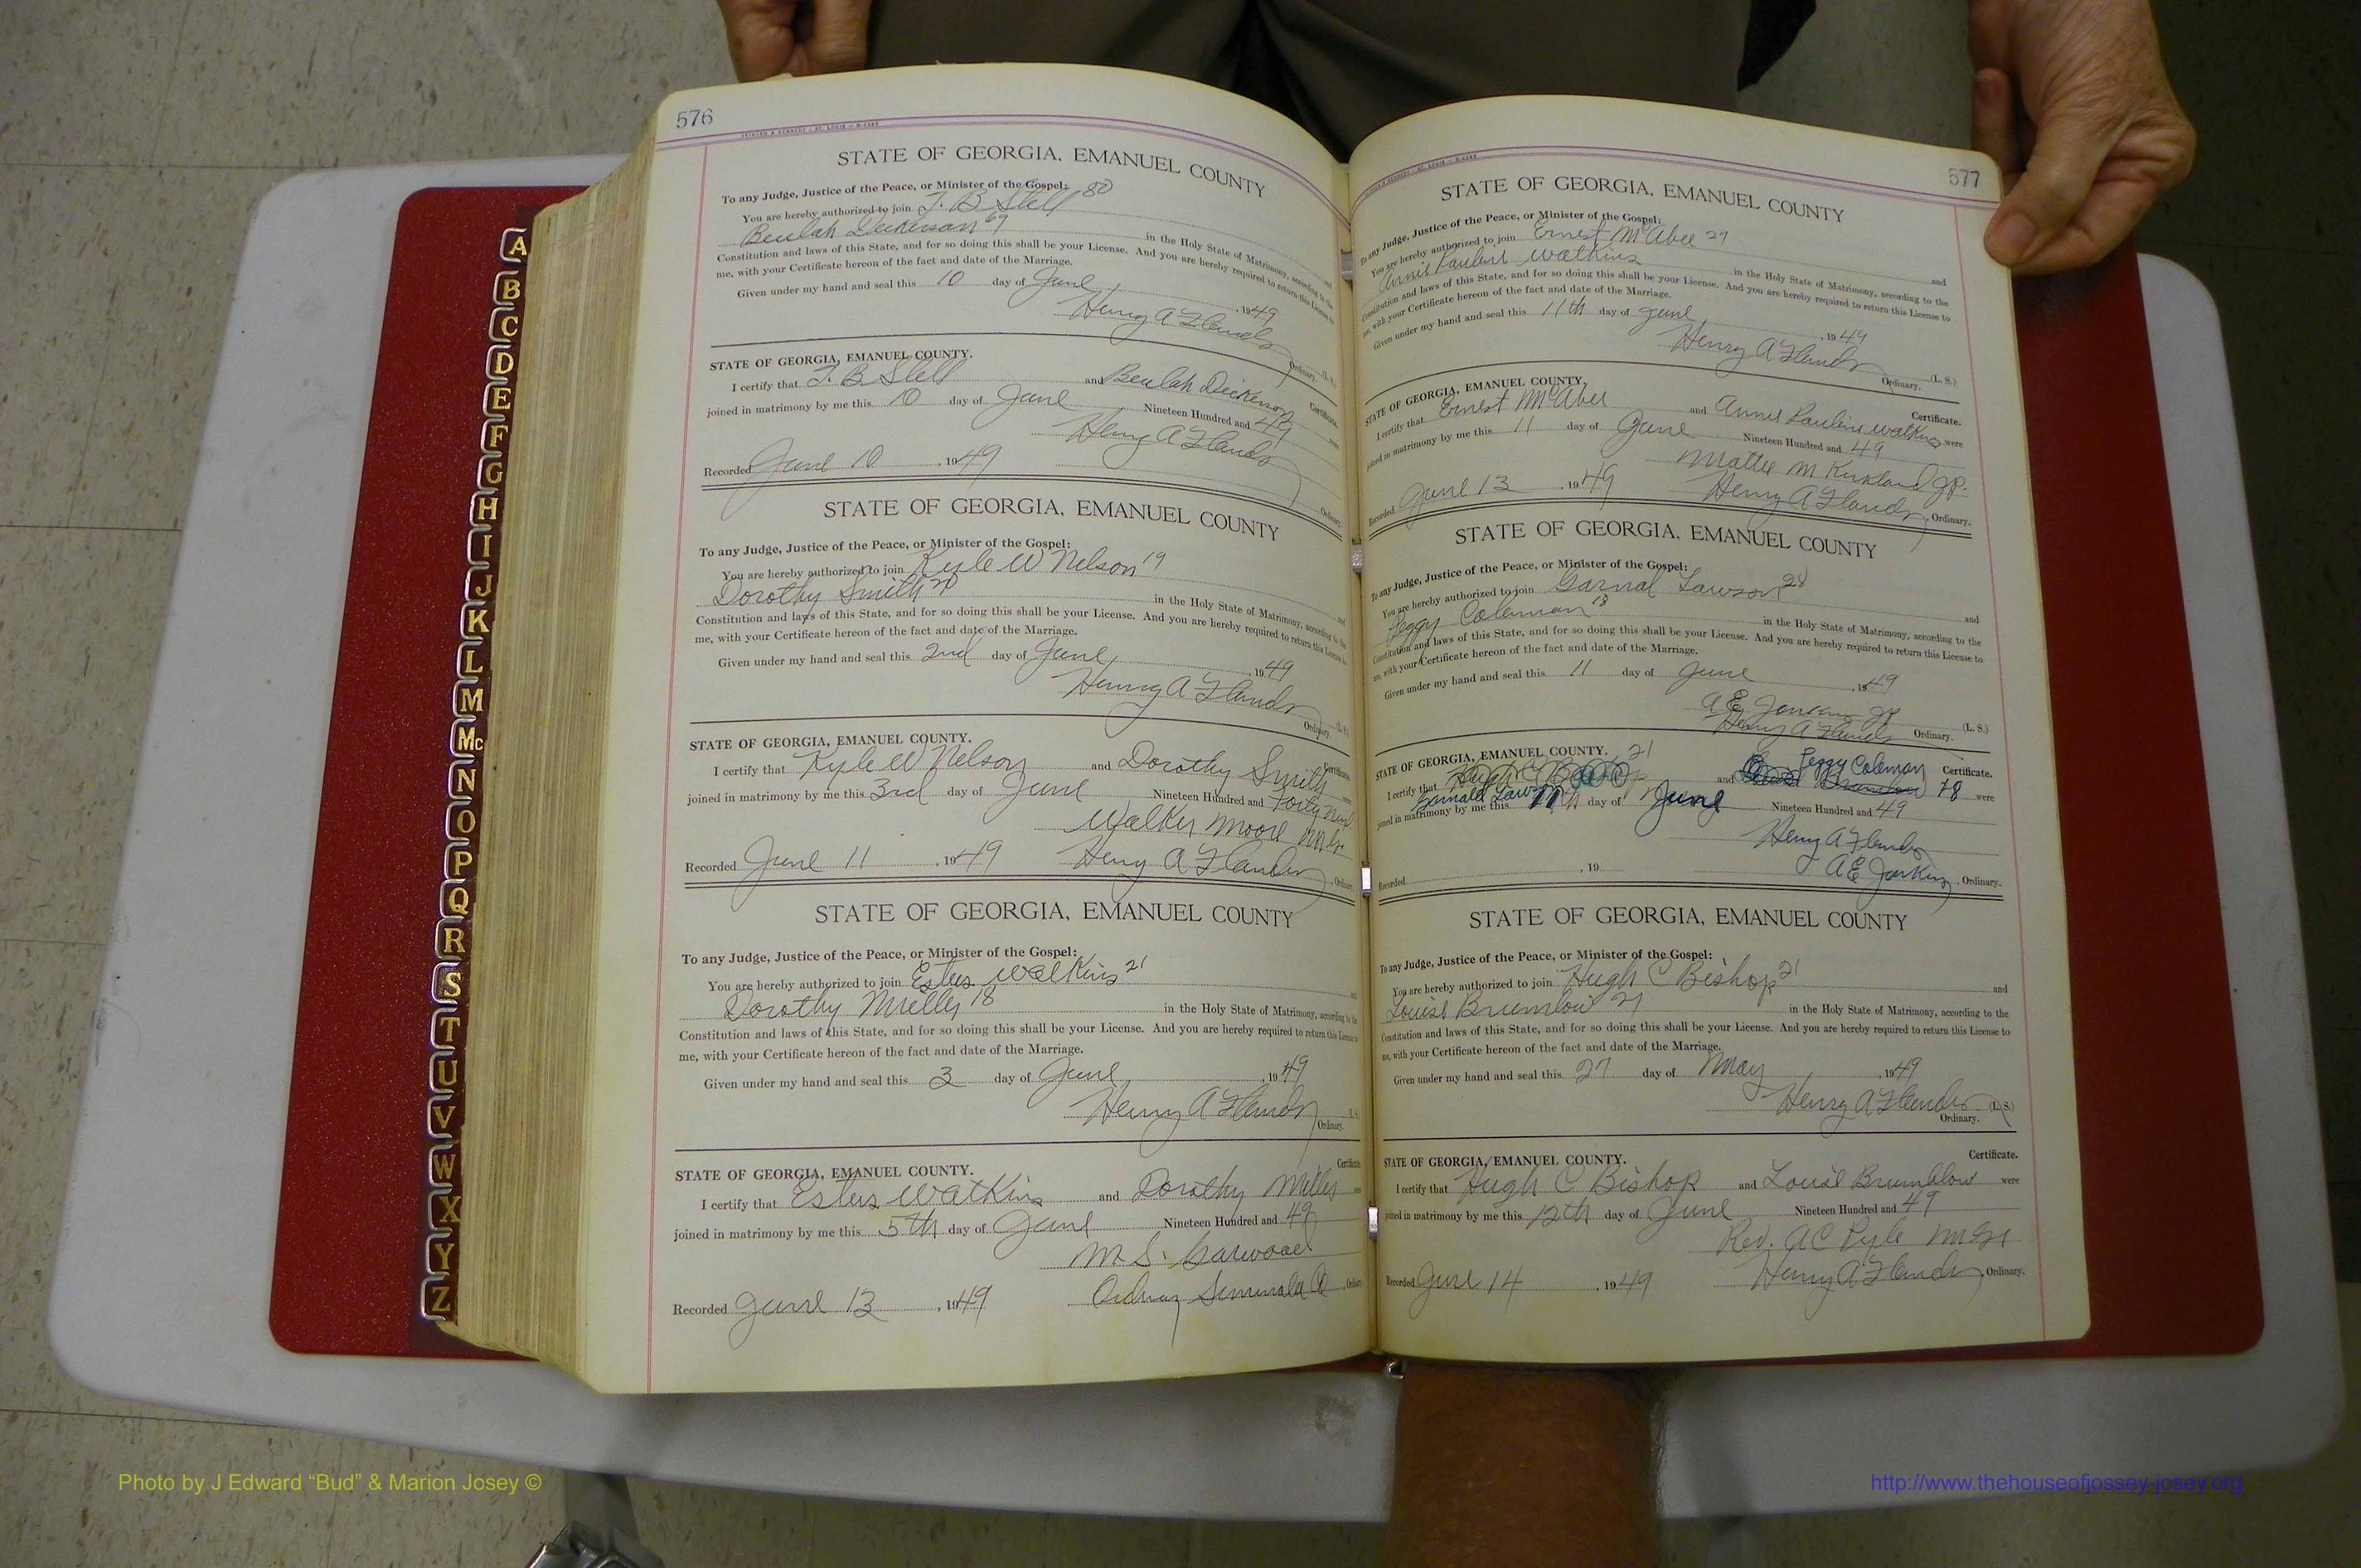 576
STATE OF GEORGIA, EMANUEL COUNTY
To any Judge, Justice of the Peace, or Minister of the Gospel:
You are hereby authorized to join J. B. Stell 80 and
Beulah Dickerson 69 in the Holy State of Matrimony, according to the
Constitution and laws of this State, and for so doing this shall be your License. And you are hereby required to return this License to
me, with your Certificate hereon of the fact and date of the Marriage.
Given under my hand and seal this 10 day of June, 1949
Henry A Flanders (L. S.)
Ordinary.
STATE OF GEORGIA, EMANUEL COUNTY. Certificate.
I certify that J. B Stell and Beulah Dickerson were
joined in matrimony by me this 10 day of June Nineteen Hundred and 49
Henry A Flanders
Recorded June 10, 1949 Ordinary.
STATE OF GEORGIA, EMANUEL COUNTY
To any Judge, Justice of the Peace, or Minister of the Gospel:
You are hereby authorized to join Kyle W Nelson 19 and
Dorothy Smith 20 in the Holy State of Matrimony, according to the
Constitution and laws of this State, and for so doing this shall be your License. And you are hereby required to return this License to
me, with your Certificate hereon of the fact and date of the Marriage.
Given under my hand and seal this 2nd day of June, 1949
Henry A Flanders (L. S.)
Ordinary.
STATE OF GEORGIA, EMANUEL COUNTY. Certificate.
I certify that Kyle W Nelson and Dorothy Smith were
joined in matrimony by me this 3rd day of June Nineteen Hundred and Forty Nine
Walker Moore
Recorded June 11, 1949 Henry A Flanders Ordinary
STATE OF GEORGIA, EMANUEL COUNTY
To any Judge, Justice of the Peace, or Minister of the Gospel:
You are hereby authorized to join Estus Watkins 21 and
Dorothy 18 in the Holy State of Matrimony, according to the
Constitution and laws of this State, and for so doing this shall be your License. And you are hereby required to return this License to
me, with your Certificate hereon of the fact and date of the Marriage.
Given under my hand and seal this 3 day of June, 1949
Henry A Flanders (L. S.)
Ordinary.
STATE OF GEORGIA, EMANUEL COUNTY. Certificate.
I certify that Estus Watkins and Dorothy were
joined in matrimony by me this 5th day of June Nineteen Hundred and 49
M. S.
Recorded June 13, 1949 Ordinary
577
STATE OF GEORGIA, EMANUEL COUNTY
To any Judge, Justice of the Peace, or Minister of the Gospel:
You are hereby authorized to join Ernest McAbee and
Annie Pauline Watkins in the Holy State of Matrimony, according to the
Constitution and laws of this State, and for so doing this shall be your License. And you are hereby required to return this License to
me, with your Certificate hereon of the fact and date of the Marriage.
Given under my hand and seal this 11th day of June, 1949
Henry A Flanders (L. S.)
Ordinary.
STATE OF GEORGIA, EMANUEL COUNTY. Certificate.
I certify that Ernest McAbee and Annie Pauline Watkins were
joined in matrimony by me this 11 day of June Nineteen Hundred and 49
Mattie M Kirkland J.P.
Recorded June 13, 1949 Henry A Flanders, Ordinary.
STATE OF GEORGIA, EMANUEL COUNTY
To any Judge, Justice of the Peace, or Minister of the Gospel:
You are hereby authorized to join Garnal Lawson 28 and
Peggy Coleman 18 in the Holy State of Matrimony, according to the
Constitution and laws of this State, and for so doing this shall be your License. And you are hereby required to return this License to
me, with your Certificate hereon of the fact and date of the Marriage.
Given under my hand and seal this 11 day of June, 1949
A E JP
Henry A Flanders (L. S.)
Ordinary.
STATE OF GEORGIA, EMANUEL COUNTY. 21 Certificate.
I certify that Hugh C Bishop and Peggy Coleman 18 were
Garnald Lawson
joined in matrimony by me this 11th day of June Nineteen Hundred and 49
Henry A Flanders
Recorded , 19 A E Jenkins, Ordinary.
STATE OF GEORGIA, EMANUEL COUNTY
To any Judge, Justice of the Peace, or Minister of the Gospel:
You are hereby authorized to join Hugh C Bishop 21 and
Louise Brumlow 21 in the Holy State of Matrimony, according to the
Constitution and laws of this State, and for so doing this shall be your License. And you are hereby required to return this License to
me, with your Certificate hereon of the fact and date of the Marriage.
Given under my hand and seal this 27 day of May, 1949
Henry A Flanders (L. S.)
Ordinary.
STATE OF GEORGIA, EMANUEL COUNTY. Certificate.
I certify that Hugh C Bishop and Louise Brumblow were
joined in matrimony by me this 12th day of June Nineteen Hundred and 49
Rev. A C Pyle
Recorded June 14, 1949 Henry A Flanders, Ordinary.
A
B
C
D
E
F
G
H
I
J
K
L
M
Mc
N
O
P
Q
R
S
T
U
V
W
X
Y
Z
Photo by J Edward “Bud” & Marion Josey ©
http://www.thehouseofjossey-josey.org